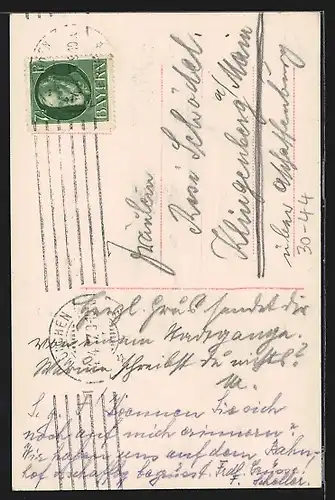 7½ BAYERN
MÜNCHEN
Fräulein
Rosi Schödel.
Klingenberg a/Main
über Aschaffenburg
30-44
Herzl. Grüß sendet dir
von einem
Warum schreibst du nicht?
M.
S. g. F. Koennen Sie sich
noch auf mich erinnern?
Wir haben uns auf dem Bahn-
hof begrüsst. Frdl. Grüsse!
Scheller.